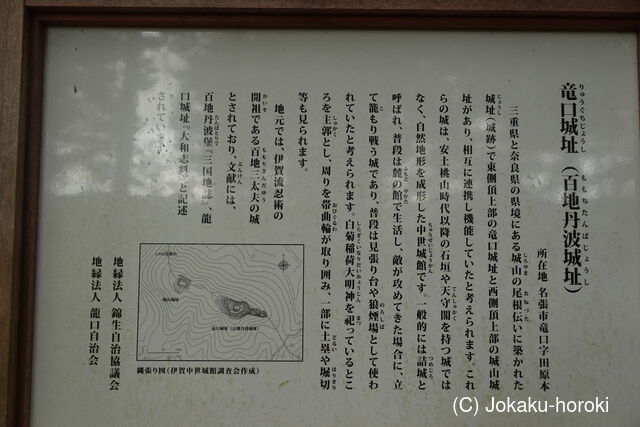 竜口城址（百地丹波城址）
りゅうぐちじょうし　ももちたんばじょうし
所在地　名張市竜口字田原本
三重県と奈良県の県境にある城山の尾根伝いに築かれた
城址（城跡）で東側頂上部の竜口城址と西側頂上部の城山城
址があり、相互に連携し機能していたと考えられます。これ
らの城は、安土桃山時代以降の石垣や天守閣を持つ城では
なく、自然地形を成形した中世城館です。一般的には詰城と
呼ばれ、普段は麓の館で生活し、敵が攻めてきた場合に、立
て籠もり戦う城であり、普段は見張り台や狼煙場として使わ
れていたと考えられます。白菊稲荷大明神を祀っているとこ
ろを主郭とし、周りを帯曲輪が取り囲み、一部に土塁や堀切
等も見られます。
地元では、伊賀流忍術の
開祖である百地三太夫の城
とされており、文献には、
百地丹波堡『三国地誌』、龍
口城址『大和志料』と記述
されています。
縄張り図（伊賀中世城館調査会作成）
地縁法人　錦生自治協議会
地縁法人　龍口自治会
(C) Jokaku-horoki